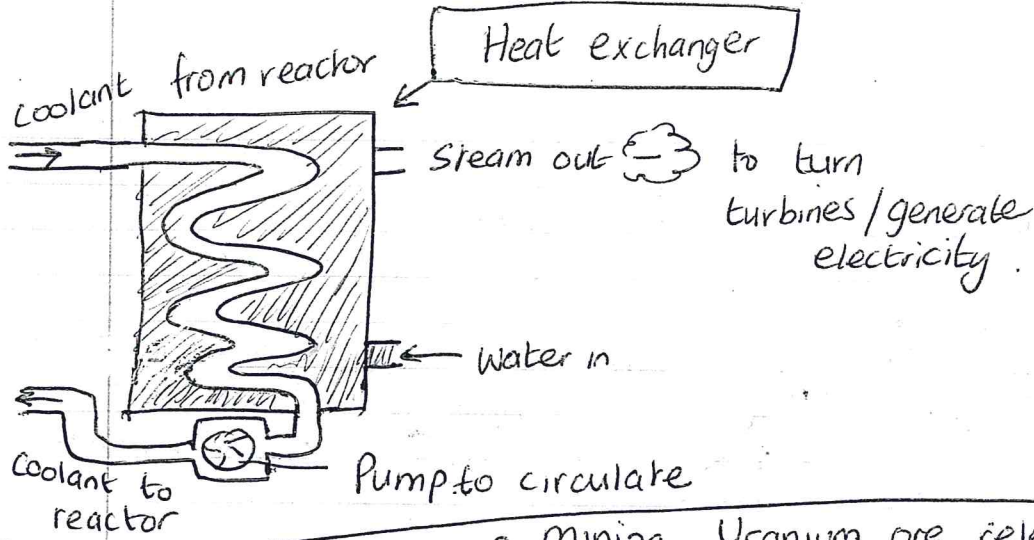 Heat exchanger
coolant from reactor
Steam out
to turn
turbines / generate
electricity.
Water in
Coolant to
reactor
Pump to circulate
mining Uranium ore